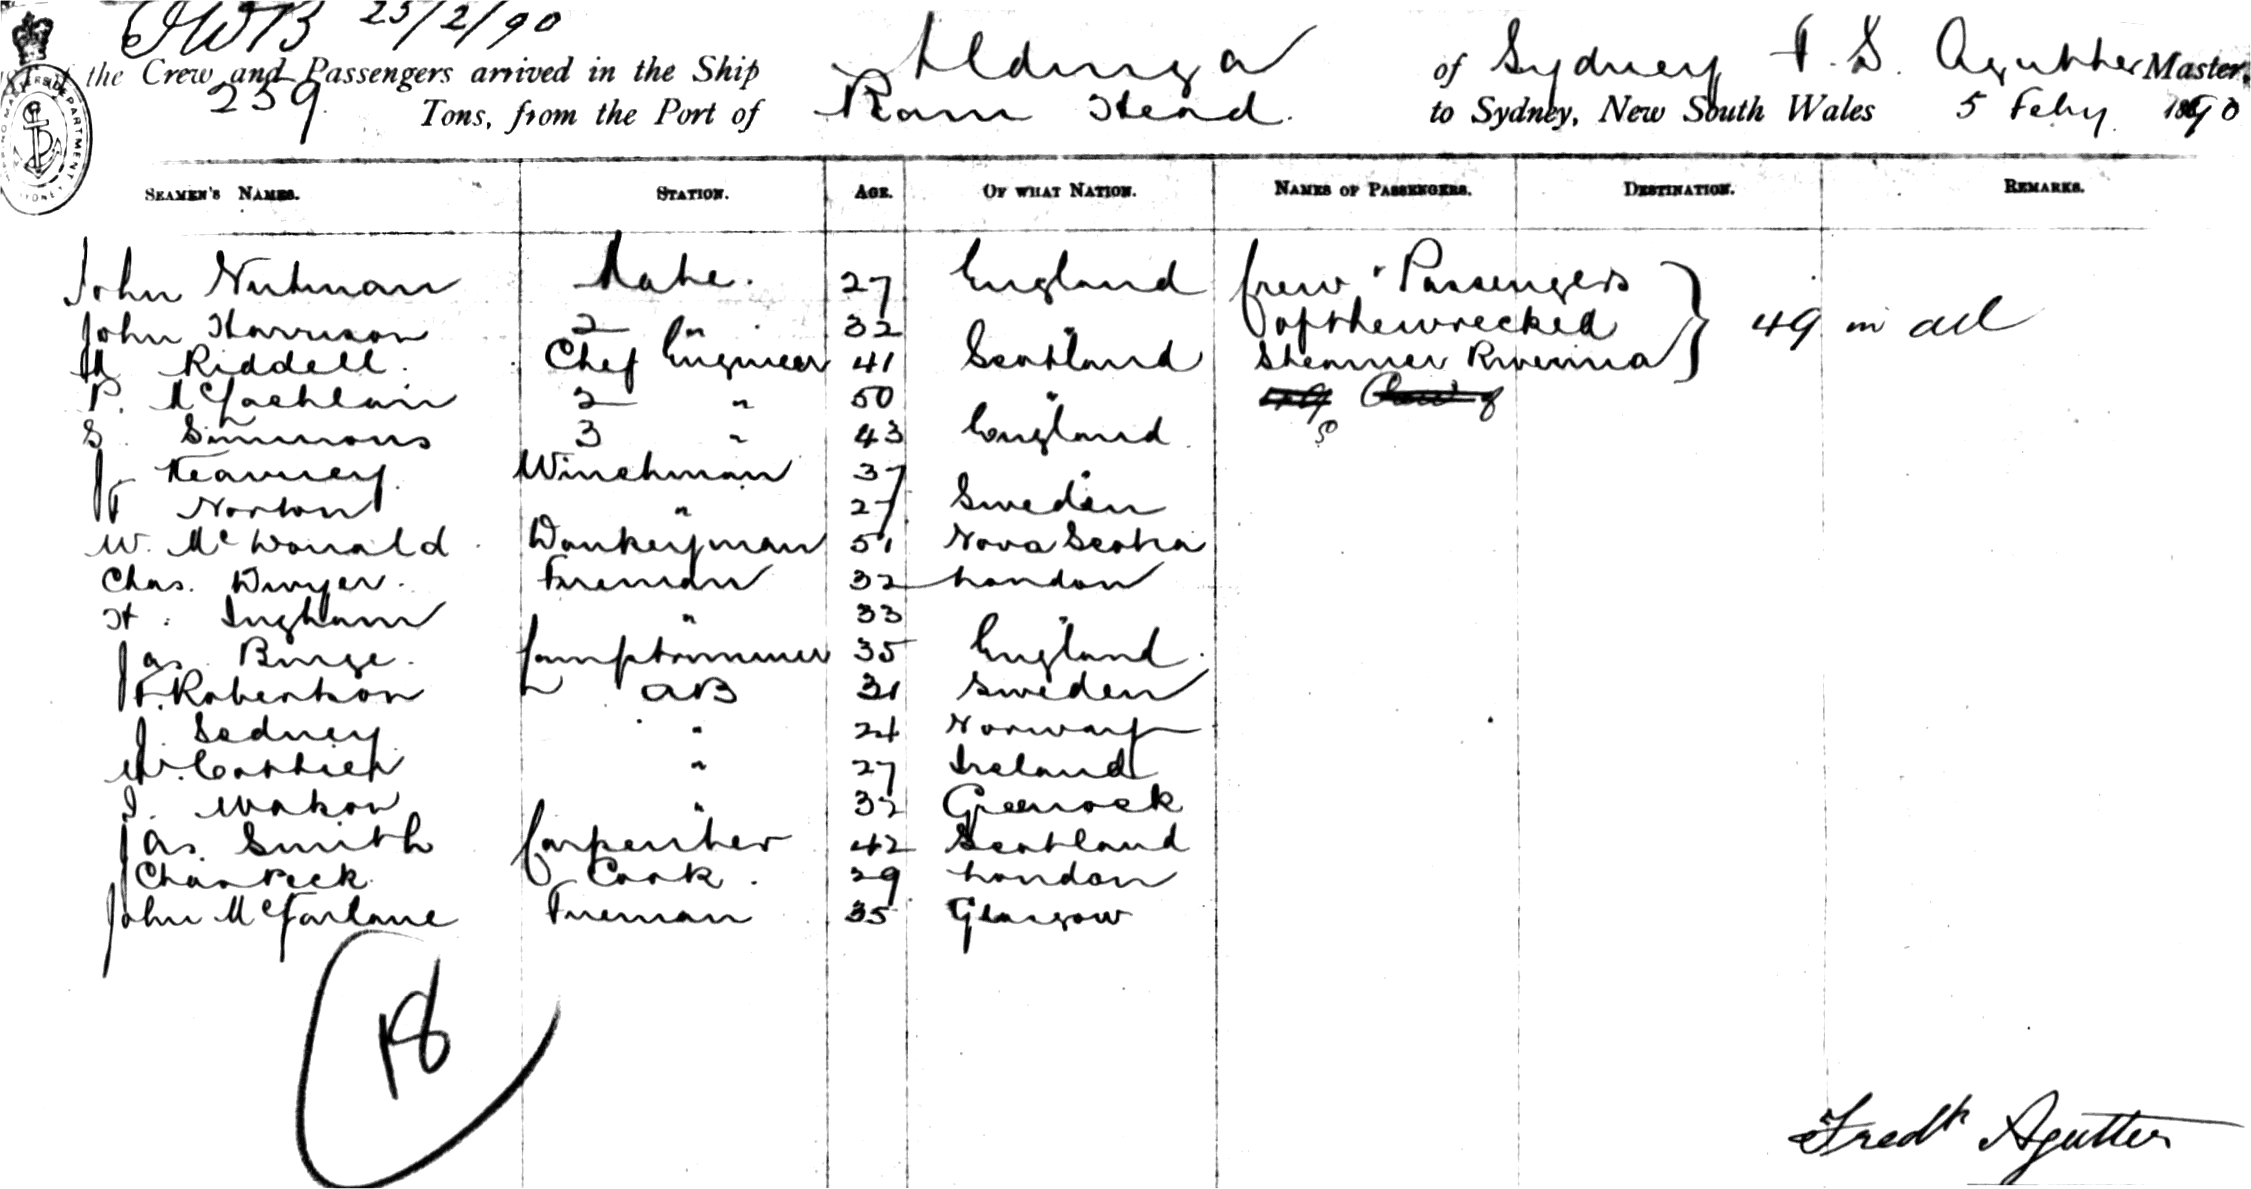 25/2/90
the Crew and Passengers arrived in the Ship Aldinga of Sydney F. S. Agutter Master,
239 Tons, from the Port of Ram Head to Sydney, New South Wales 5 Feby 1890
SEAMEN'S NAMES. STATION. AGE. OF WHAT NATION. NAMES OF PASSENGERS. DESTINATION. REMARKS.
John Nutman Mate. 27 England Crew & Passengers
John Harrison 2 " 32 " of the wrecked 49 in all
Riddell Chief Engineer 41 Scotland Steamer Riverina
P. McLachlain 2 " 50 "
S. Simmons 3 " 43 England
J Kearney Winchman 37 "
F Norton " 27 Sweden
W. McDonald Donkeyman 51 Nova Scotia
Chas. Dwyer Fireman 32 London
H. Ingham " 33 "
Jas. Burge Lamptrimmer 35 England
F. Robertson AB 31 Sweden
J. Sedney " 24 Norway
" 27 Ireland
" 32 Greenock
Jas. Smith Carpenter 42 Scotland
Chas Peck Cook 29 London
John McFarlane Fireman 35 Glasgow
18
Fredk Agutter